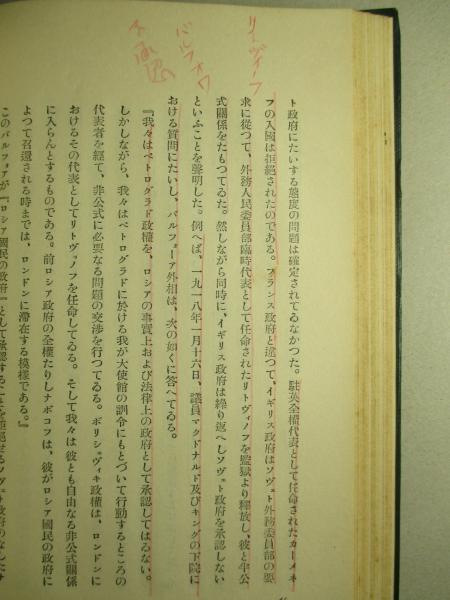 リトヴィノフ
バルフォワ
不承認
ト政府にたいする態度の問題は確定されてゐなかつた。駐英全権代表として任命されたカーメネ
フの入国は拒絶されたのである。フランス政府と違つて、イギリス政府はソヴェト外務委員部の要
求に従つて、外務人民委員部臨時代表として任命されたリトヴィノフを監獄より釈放し、彼と半公
式関係をたもつてゐた。然しながら同時に、イギリス政府は繰り返へしソヴェト政府を承認しない
といふことを声明した。例へば、一九一八年一月十六日、議員マクドナルド及びキングの下院に
おける質問にたいし、バルフォーア外相は、次の如くに答へてゐる。
『我々はペトログラド政権を、ロシアの事実上および法律上の政府として承認してはゐない。
しかしながら、我々はペトログラドに於ける我が大使館の訓令にもとづいて行動するところの
代表者を経て、非公式に必要なる問題の交渉を行つてゐる。ボリシェヴィキ政権は、ロンドンに
おけるその代表としてリトヴィノフを任命してゐる。そして我々は彼とも自由なる非公式関係
に入らんとするものである。前ロシア政府の全権たりしナボコフは、彼がロシア国民の政府に
よつて召還される時までは、ロンドンに滞在する模様である。』
このバルフォアが『ロシア国民の政府』として承認することを拒絶せるソヴェト政府の